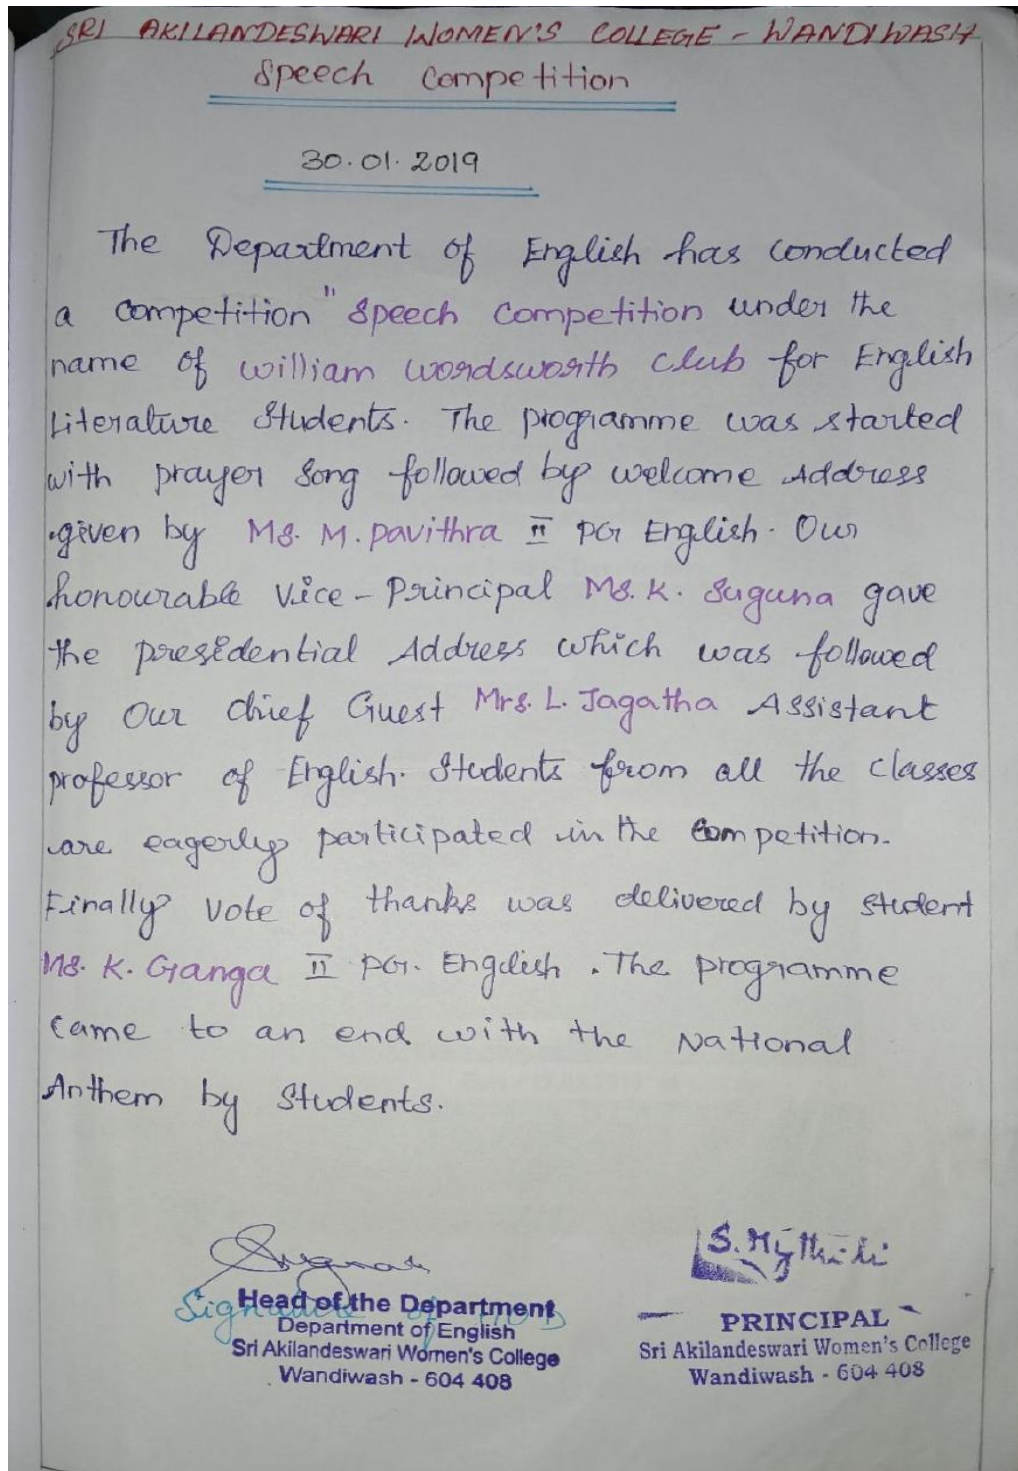 SRI AKILANDESWARI WOMEN'S COLLEGE - WANDIWASH
Speech Competition
30.01.2019
The Department of English has conducted
a competition " Speech Competition under the
name of william wordsworth club for English
Literature Students. The programme was started
with prayer song followed by welcome Address
given by Ms. M. Pavithra II PG English. Our
honourable Vice - Principal Ms. K. Suguna gave
the presidential Address which was followed
by Our chief Guest Mrs. L. Jagatha Assistant
professor of English. Students from all the classes
are eagerly participated in the Competition.
Finally vote of thanks was delivered by student
Ms. K. Ganga II PG. English. The programme
came to an end with the National
Anthem by Students.
Signature of HOD
Head of the Department
Department of English
Sri Akilandeswari Women's College
Wandiwash - 604 408
S. Mythili
PRINCIPAL
Sri Akilandeswari Women's College
Wandiwash - 604 408